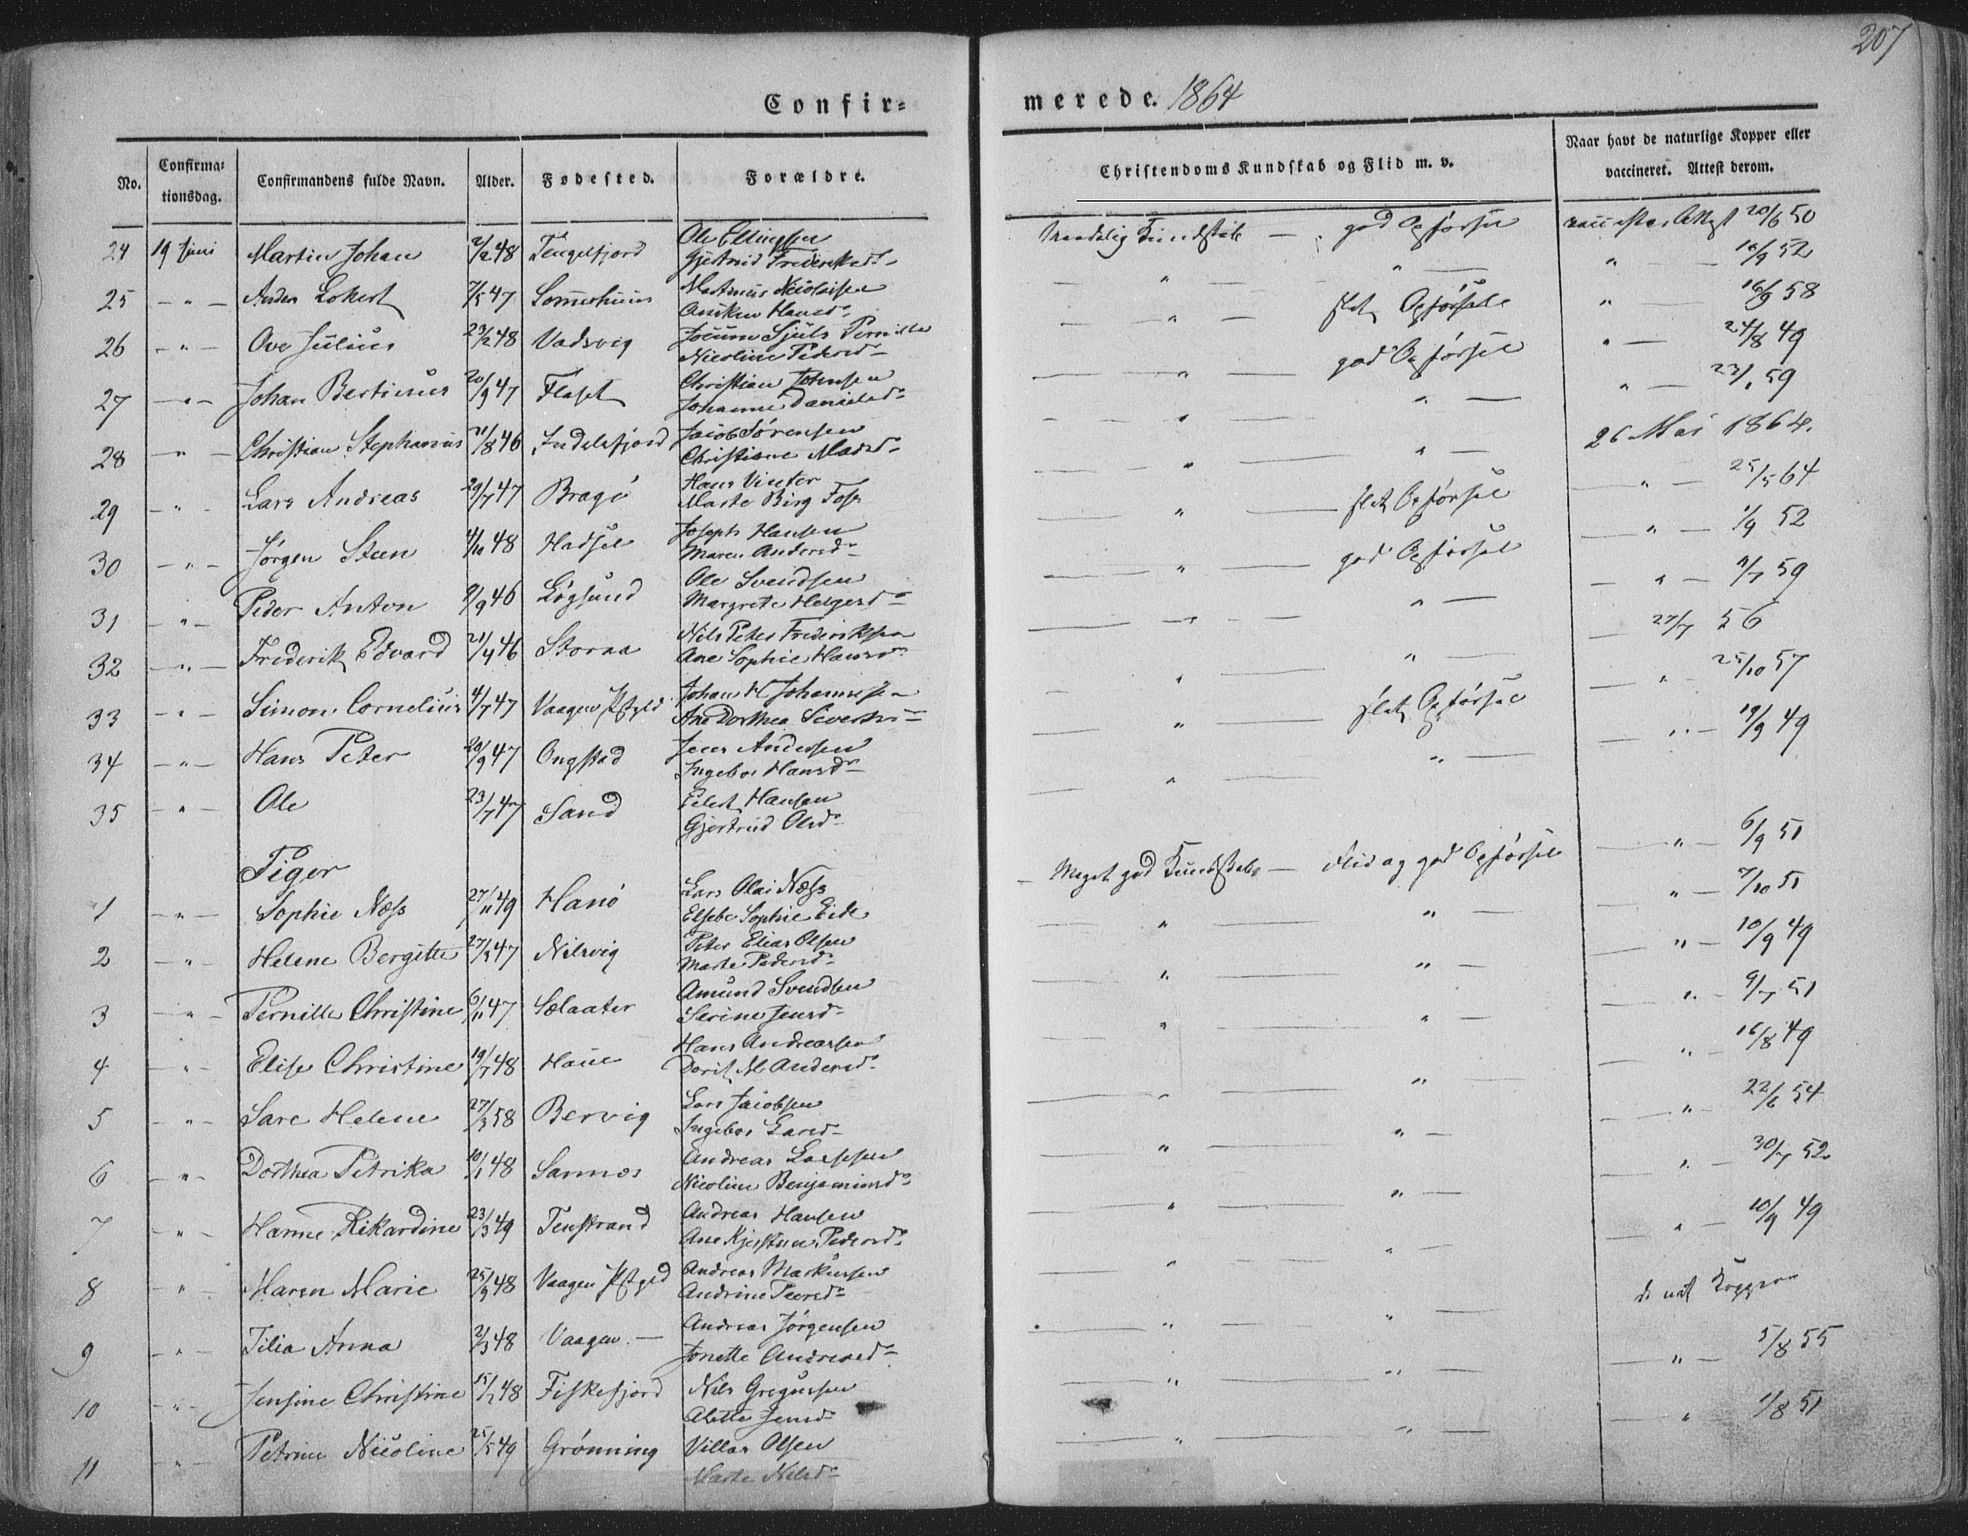 207
Confir-
merede. 1864
No.
Confirma-
tionsdag.
Confirmandens fulde Navn.
Alder.
Fødested.
Forældre.
Christendoms Kundskab og Flid m. v.
Naar havt de naturlige Kopper eller
vaccineret. Attest derom.
24 19 Juni Martin Johan 2/2 48 Tengelfjord Ole Ellingsen Kundskab — god Opførsel Attest 20/6 50
Gjertrud Frederiksd. " " — " — 16/9 52
25 — " — Ander Lokert 7/5 47 Sommerhuus Martinus Nicolaisen
Aniken Hansd. " — slet Opførsel " — 16/9 58
26 — " — Ove Julius 23/2 48 Vadsvig Pernille
Nicoline Pedersd. " — god Opførsel " — 24/8 49
27 — " — Johan Bertinus 20/9 47 Flaset Christian Johnsen
Johanne Danielsd. " — " — " — 23/1 59
28 — " — Christian Stephanus 21/8 46 Indelsfjord Jacob Sørensen
Christiane Madsd. " — " — 26 Mai 1864.
29 — " — Lars Andreas 29/7 47 Bragø Hans Vinter
Marte Birg Foss " — slet Opførsel " — 25/5 64
30 — " — Jørgen Steen 4/10 48 Hadsel Joseph Hansen
Maren Andersd. " — god Opførsel — " — 1/9 52
31 — " — Peder Anton 9/9 46 Løgsund Ole Svendsen
Margrete Helgesd. " — " — — " — 11/7 59
32 — " — Frederik Edvard 21/4 46 Storaa Nils Peter Frederiksen
Ane Sophie Hansd. " — " — — 27/7 56
33 — " — Simon Cornelius 4/7 47 Vaagen Pstgjd Johan H Johannesen
Ane Dorthea Sivertsd. " — slet Opførsel — " — 25/10 57
34 — " — Hans Peter 20/9 47 Ongstad Jens Andersen
Ingebor Hansd. " — " — — " — 19/9 49
35 — " — Ole 23/7 47 Sand Eilert Hansen
Gjertrud Olsd.
Piger
1 — " — Sophie Næss 27/11 49 Hanø Lars Olai Næss
Elsebe Sophie Eide Meget god Kundskab — Flid og god Opførsel — " — 6/9 51
2 — " — Helene Bergitte 27/3 47 Nilsvig Peter Elias Olsen
Marte Pedersd. " — " — — " — 7/10 51
3 — " — Pernille Christine 6/11 47 Sælaater Amund Svendsen
Serine Jensd. " — " — " — 10/9 49
4 — " — Elise Christine 19/7 48 Haue Hans Andreassen
Dorit M Andersd. " — " — " — 9/7 51
5 — " — Sare Helene 27/3 58 Bervig Lars Jacobsen
Ingebor Larsd. " — " — " — 16/8 49
6 — " — Dorthea Petrika 10/1 48 Sannes Andreas Larssen
Nicoline Benjaminsd. " — " — " — 22/6 54
7 — " — Hanne Rikardine 23/3 49 Tenstrand Andreas Hansen
Ane Kjerstine Pedersd. " — " — " — 30/7 52
8 — " — Maren Marie 25/9 48 Vaagen Pstgjd Andreas Markussen
Andrine Peersd. " — " — " — 10/9 49
9 — " — Tilia Anna 2/3 48 Vaagen — Andreas Jørgensen
Jonette Andreasd. " — " — d. nat. Kopper
10 — " — Jensine Christine 15/1 48 Fiskefjord Nils Gregussen
Alette Jensd. " — " — " — 5/8 55
11 — " — Petrine Nicoline 25/5 49 Grønning Villas Olsen
Marte Nilsd. " — " — " — 1/8 51